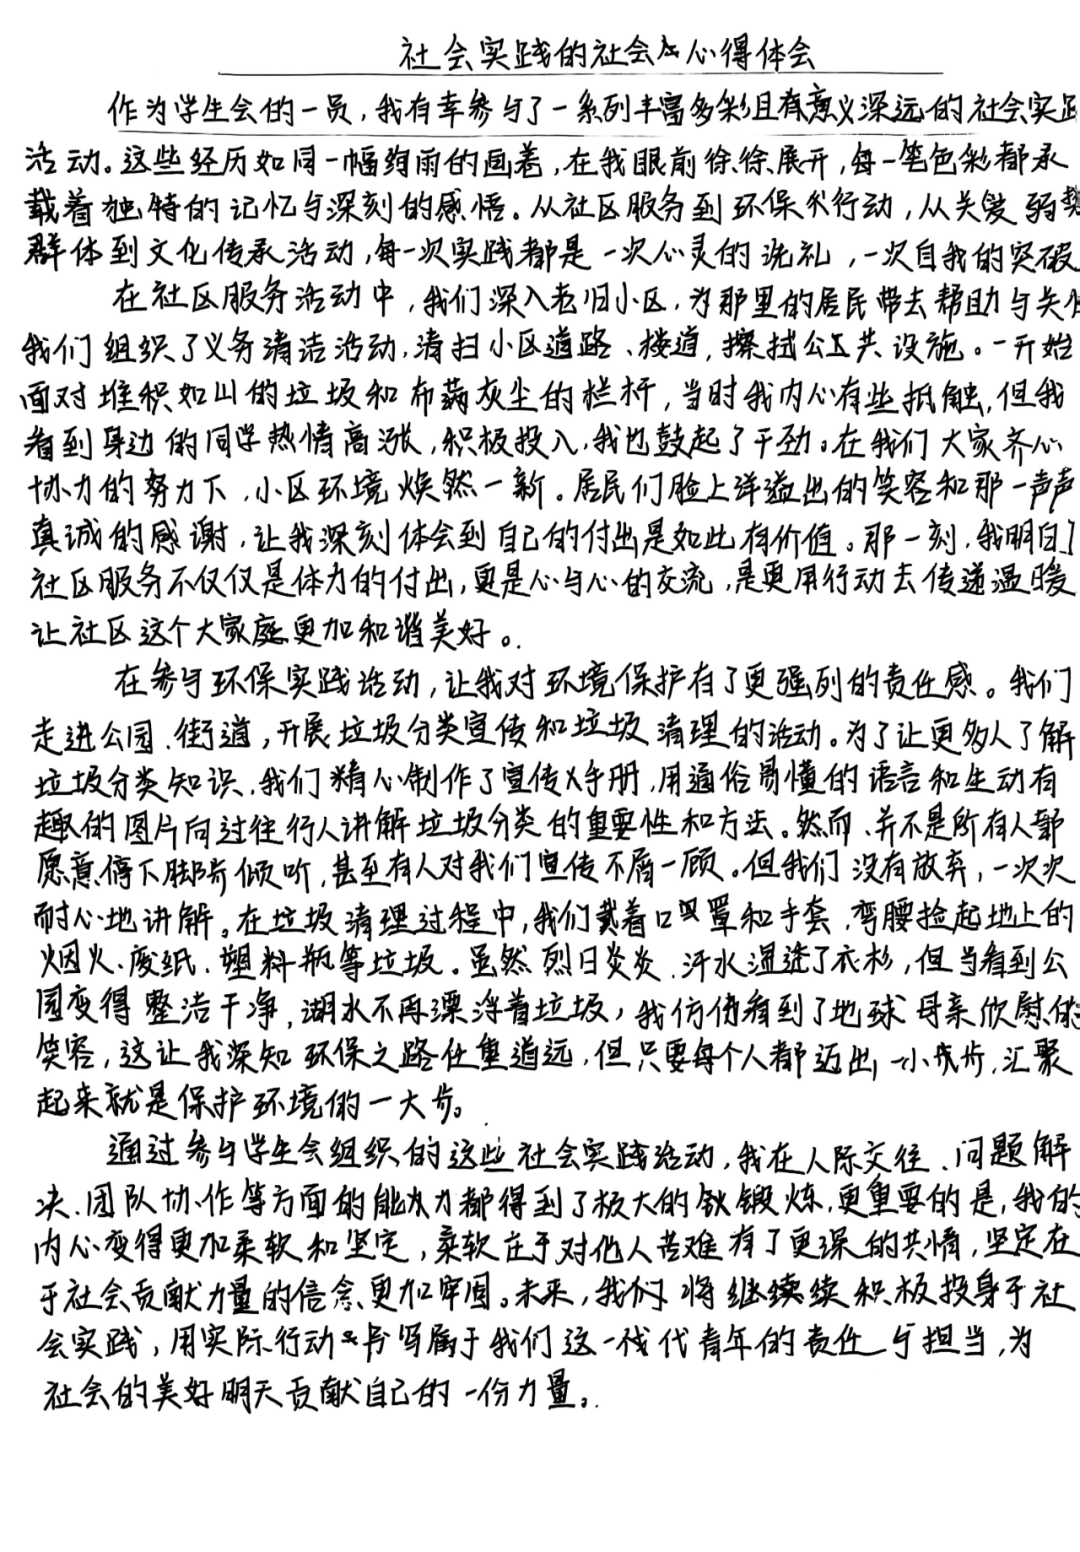 社会实践的社会心得体会
作为学生会的一员，我有幸参与了一系列丰富多彩且有意义深远的社会实践
活动。这些经历如同一幅绚雨的画卷，在我眼前徐徐展开，每一笔色彩都承
载着独特的记忆与深刻的感悟。从社区服务到环保行动，从关爱弱势
群体到文化传承活动，每一次实践都是一次心灵的洗礼，一次自我的突破
在社区服务活动中，我们深入老旧小区，为那里的居民带去帮助与关怀
我们组织了义务清洁活动，清扫小区道路、楼道，擦拭公共设施。一开始
面对堆积如山的垃圾和布满灰尘的栏杆，当时我内心有些抵触，但我
看到身边的同学热情高涨，积极投入，我也鼓起了干劲。在我们大家齐心
协力的努力下，小区环境焕然一新。居民们脸上洋溢出的笑容和那一声声
真诚的感谢，让我深刻体会到自己的付出是如此有价值。那一刻，我明白了
社区服务不仅仅是体力的付出，更是心与心的交流，是更用行动去传递温暖
让社区这个大家庭更加和谐美好。
在参与环保实践活动，让我对环境保护有了更强列的责任感。我们
走进公园、街道，开展垃圾分类宣传和垃圾清理的活动。为了让更多人了解
垃圾分类知识，我们精心制作了宣传手册，用通俗易懂的语言和生动有
趣的图片向过往行人讲解垃圾分类的重要性和方法。然而，并不是所有人都
愿意停下脚步倾听，甚至有人对我们宣传不屑一顾。但我们没有放弃，一次次
耐心地讲解。在垃圾清理过程中，我们戴着口罩和手套，弯腰捡起地上的
烟火、废纸、塑料瓶等垃圾。虽然烈日炎炎，汗水湿透了衣衫，但当看到公
园变得整洁干净，湖水不再漂浮着垃圾，我仿佛看到了地球母亲欣慰的
笑容，这让我深知环保之路任重道远，但只要每个人都迈出一小步，汇聚
起来就是保护环境的一大步。
通过参与学生会组织的这些社会实践活动，我在人际交往、问题解
决、团队协作等方面的能力都得到了极大的锻炼，更重要的是，我的
内心变得更加柔软和坚定，柔软在于对他人苦难有了更深的共情，坚定在
于社会贡献力量的信念更加牢固。未来，我们将继续续积极投身于社
会实践，用实际行动书写属于我们这一代代青年的责任与担当，为
社会的美好明天贡献自己的一份力量。